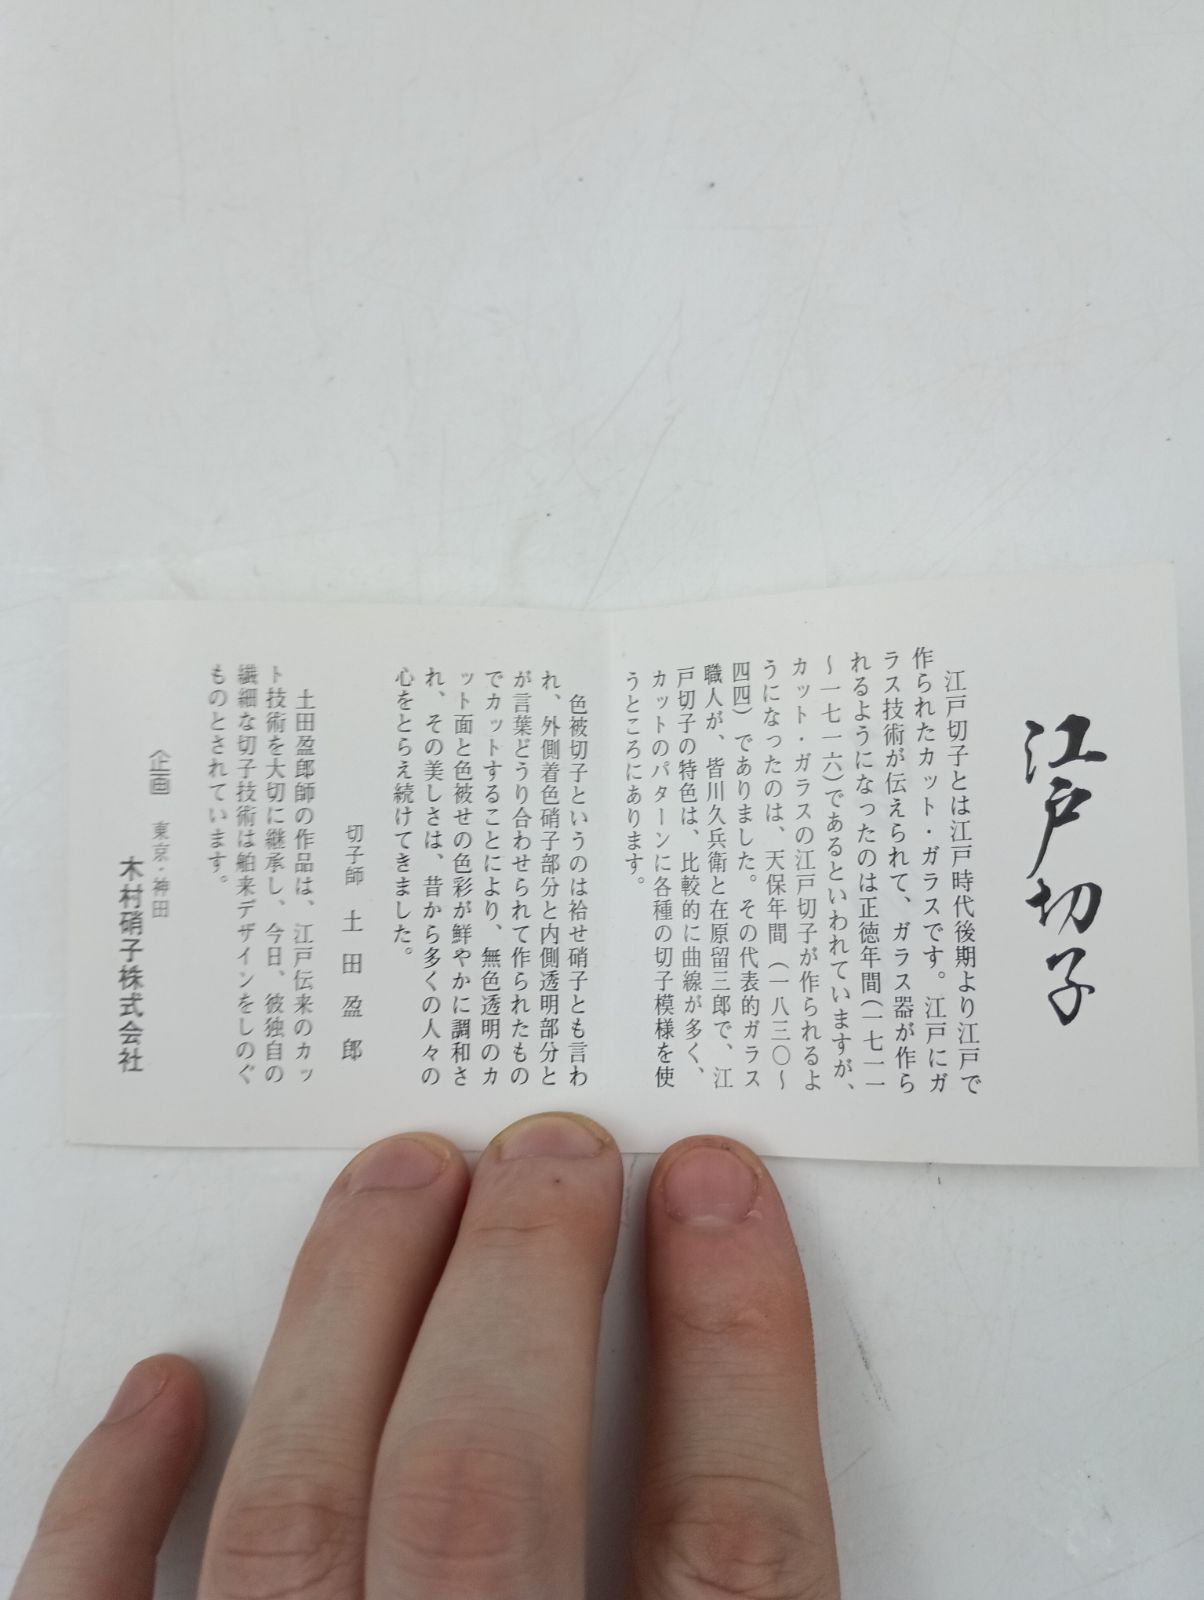 江戸切子
江戸切子とは江戸時代後期より江戸で
作られたカット・ガラスです。江戸にガ
ラス技術が伝えられて、ガラス器が作ら
れるようになったのは正徳年間(一七一一
〜一七一六)であるといわれていますが、
カット・ガラスの江戸切子が作られるよ
うになったのは、天保年間(一八三〇〜
四四)でありました。その代表的ガラス
職人が、皆川久兵衛と在原留三郎で、江
戸切子の特色は、比較的に曲線が多く、
カットのパターンに各種の切子模様を使
うところにあります。
色被切子というのは袷せ硝子とも言わ
れ、外側着色硝子部分と内側透明部分と
が言葉どうり合わせられて作られたもの
でカットすることにより、無色透明のカ
ット面と色被せの色彩が鮮やかに調和さ
れ、その美しさは、昔から多くの人々の
心をとらえ続けてきました。
切子師 土田盈郎
土田盈郎師の作品は、江戸伝来のカッ
ト技術を大切に継承し、今日、彼独自の
繊細な切子技術は舶来デザインをしのぐ
ものとされています。
企画 東京・神田
木村硝子株式会社